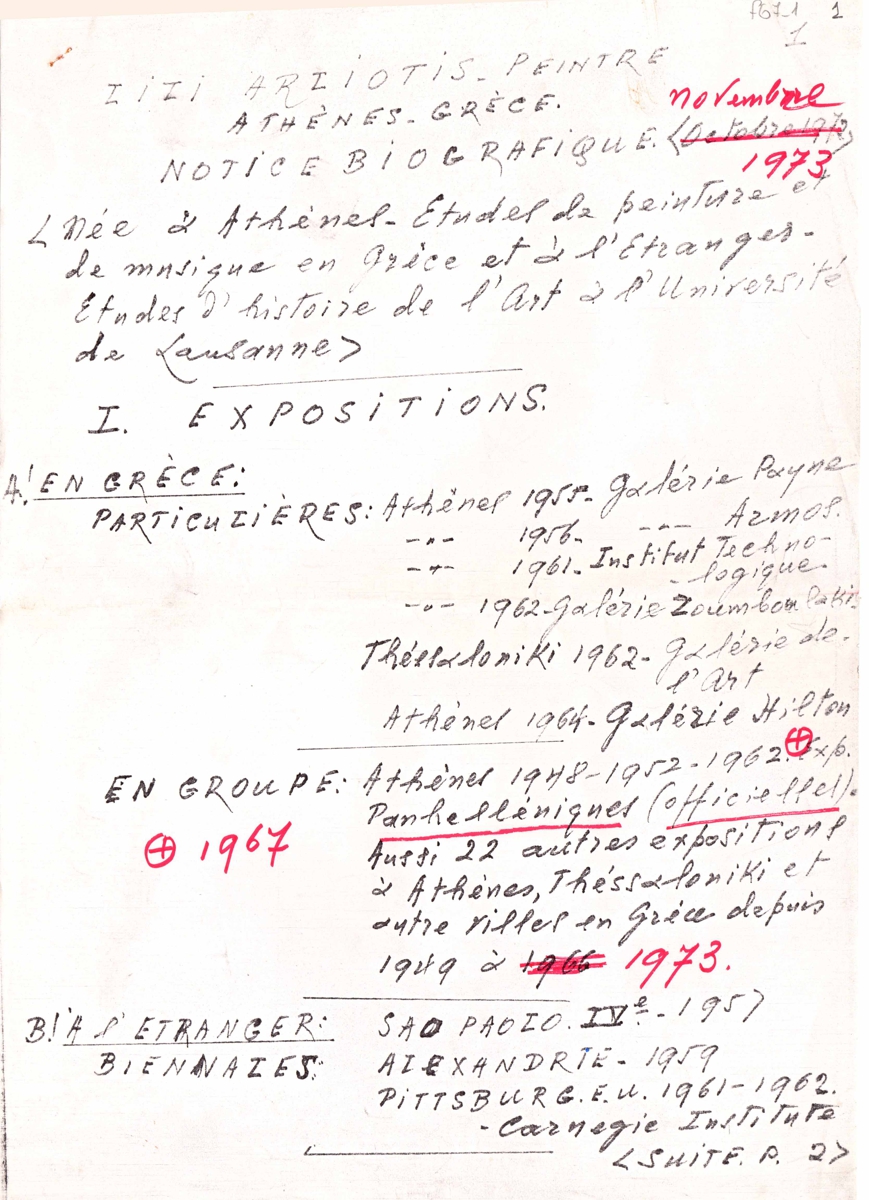 f67-1 1
1
LiLi ARLiOTiS - PEiNTRE
ATHÈNES - GRÈCE.
novembre
NOTiCE BiOGRAFiQUE. <Octobre 1972>
1973
<Née à Athènes - Etudes de peinture et
de musique en Grèce et à l'Etranger -
Etudes d'histoire de l'Art à l'Université
de Lausanne>
I. EXPOSiTiONS.
A! EN GRÈCE:
PARTiCULIÈRES: Athènes 1955 - Galérie Payne
-"- 1956 - -"- Armos.
-"- 1961 - Institut Techno-
logique.
-"- 1962 - Galérie Zoumboulaki
Théssaloniki 1962 - Galérie de
l'Art
Athènes 1964 - Galérie Hilton
EN GROUPE: Athènes 1948-1952-1962. ⊕ Exp.
Panhelléniques (officielles).
⊕ 1967
Aussi 22 autres expositions
à Athènes, Théssaloniki et
autre villes en Grèce depuis
1949 à 1966 1973.
B! A l'ETRANGER: SAO PAOLO. IVe - 1957
BiENNALES: ALEXANDRIE - 1959
PiTTSBURG. E.U. 1961-1962.
- Carnegie Institute
<SUiTE. P. 2>